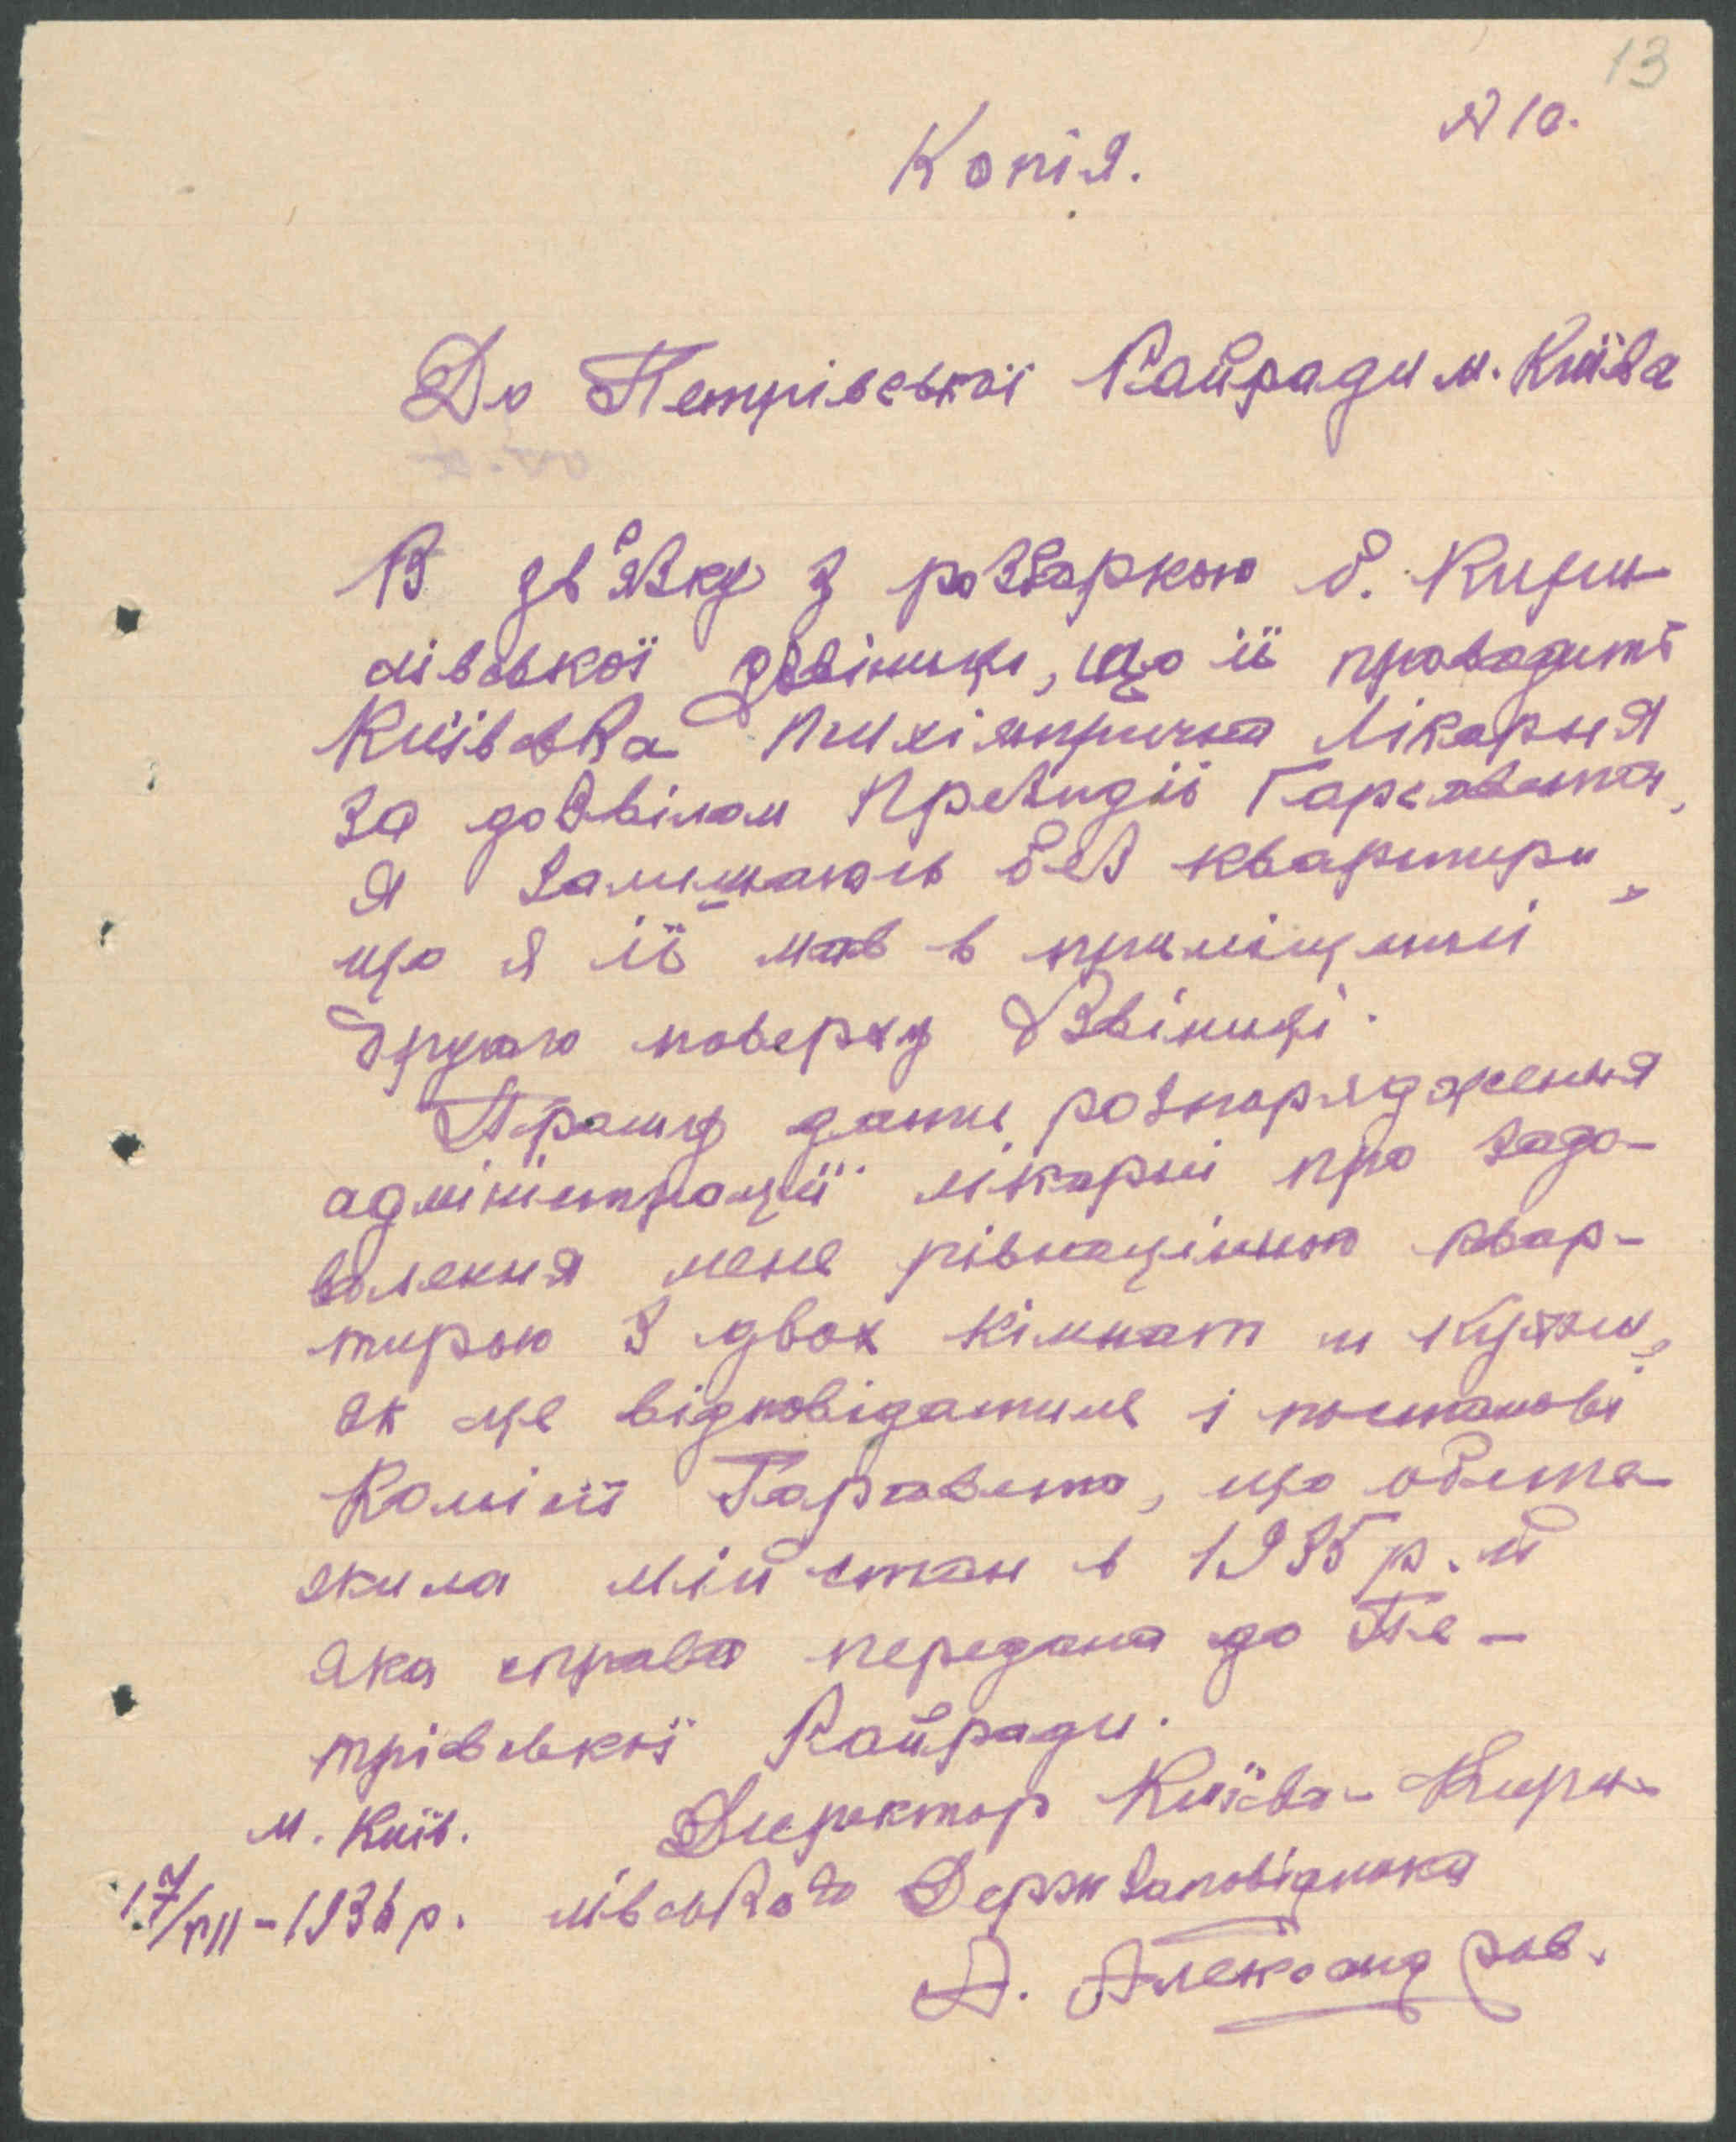 13
N 10.
Копія.
До Петрівської Райради м. Київа
В зв'язку з розборкою б. Кири-
лівської дзвіниці, що її провадить
Київська Психіятрична Лікарня
за дозвілом Президії Горсовета,
я залишаюсь без квартири,
що я її мав в приміщенні
другого поверху дзвіниці.
Прошу дати розпорядження
адміністрації лікарні про задо-
волення мене рівноцінною квар-
тирою з двох кімнат и кухни,
як це відповідатиме і постанові
Комісії Горсовета, що обсте-
жила мій стан в 1935 р. й
яка справа передана до Пе-
трівської Райради.
Директор Київо-Кири-
м. Київ.
лівського Держзаповідника
17/VII-1936 р.
А. Александров.